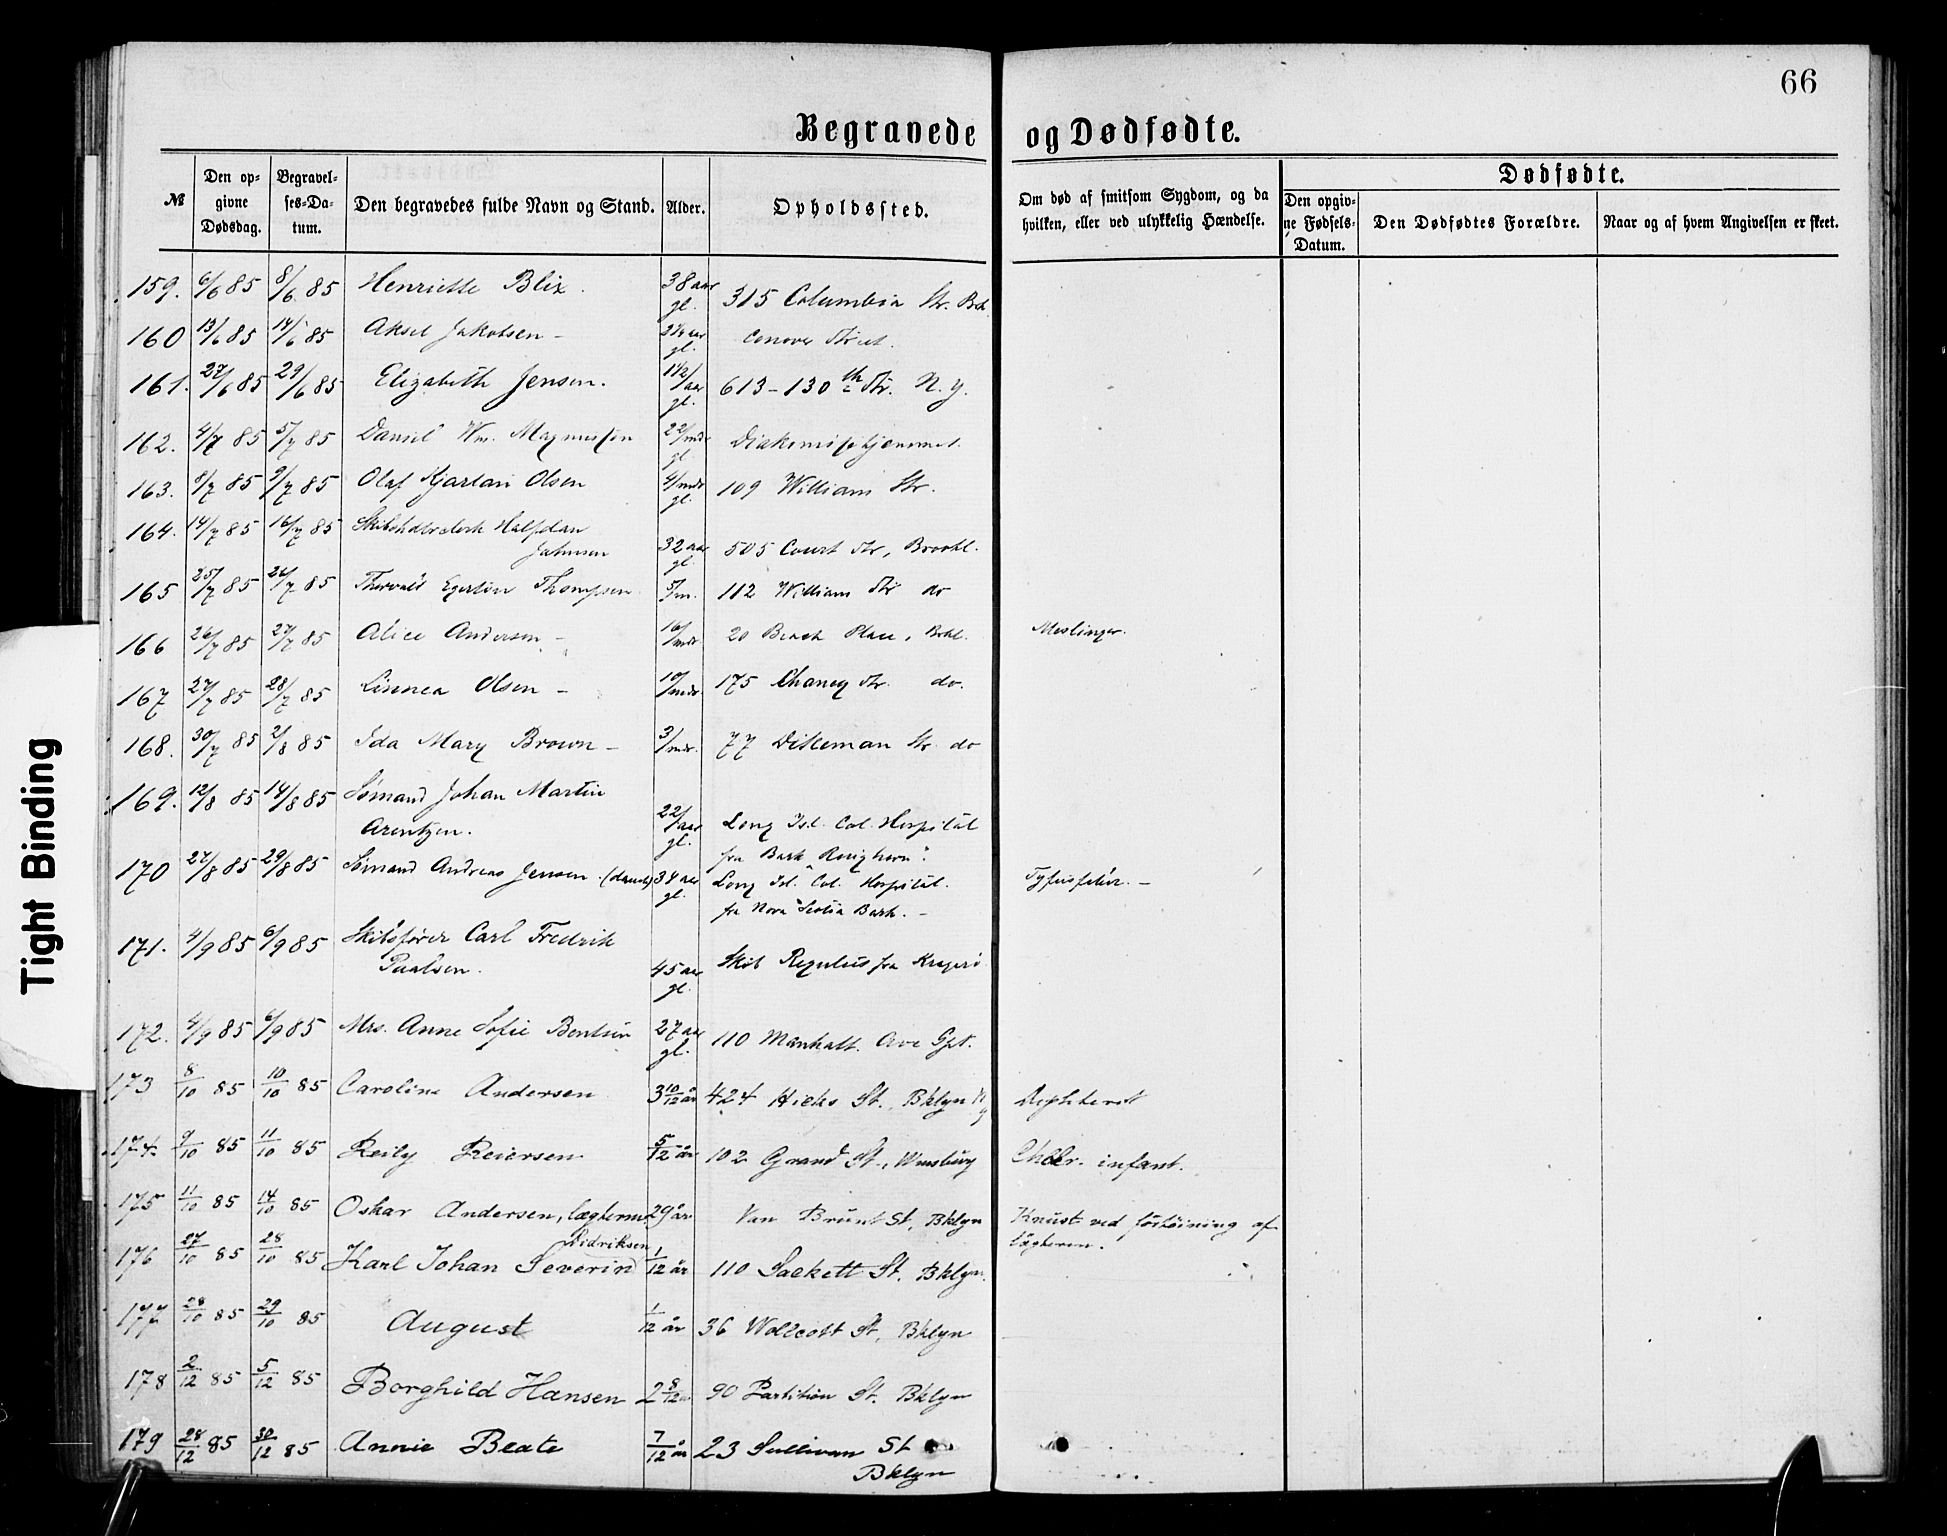 66
Begravede og Dødfødte.
№
Den opgivne Dødsdag.
Begravelses-Datum.
Den begravedes fulde Navn og Stand.
Alder.
Opholdssted.
Om død af smitsom Sygdom, og da hvilken, eller ved ulykkelig Hændelse.
Dødfødte.
Den opgivne Fødsels-Datum.
Den Dødfødtes Forældre.
Naar og af hvem Angivelsen er skeet.
159. 6/6 85 8/6 85 Henriette Blix. 38 aar gl. 315 Columbia Str.
160 13/6 85 14/6 85 Aksel Jakobsen – gl. Conover Street.
161. 27/6 85 29/6 85 Elizabeth Jensen. aar gl. 613 – 130th Str. N.Y.
162. 4/7 85 5/7 85 Daniel Wm. Magnussen 22/mdr gl. Diakonissehjemmet.
163. 8/7 85 9/7 85 Olaf Kjartan Olsen 4/mdr gl. 109 William Str.
164. 14/7 85 16/7 85 Halfdan
Johnsen 32 aar gl. 505 Court Str, Brookl.
165 25/7 85 26/7 85 Thorvald Egerton Thompsen 5/m. 112 William Str do
166 26/7 85 27/7 85 Alice Andersen – 16/mdr. 20 Beach Place, Brkl. Meslinger.
167 27/7 85 28/7 85 Linnea Olsen – 10/mdr. 175 Str. do.
168. 30/7 85 2/8 85 Ida Mary Brown – 3/mdr. 77 Dikeman Str. do
169. 12/8 85 14/8 85 Sømand Johan Martin
Arentzen. 22/aar gl. Long Isl. Col. Hospital
fra Bark
170 27/8 85 29/8 85 Sømand Andreas Jensen. (dansk) 34 aar gl. Long Isl. Col. Hospital. Tyfusfeber. –
fra Nova Scotia Bark. –
171. 4/9 85 6/9 85 Skibsfører Carl Fredrik
Paulsen. 45 aar gl. Skib Regulus fra Kragerø
172. 4/9 85 6/9 85 Mrs. Anne Sofie Bentsen 27 aar gl. 110 Manhatt. Ave Gpt.
173 8/10 85 10/10 85 Caroline Andersen 3 10/12 år 424 Hicks St., Bklyn N Y
174 9/10 85 11/10 85 Reily Reiersen 5/12 år 102 Grand St., Wmsburg Choler. infant.
175 11/10 85 14/10 85 Oskar Andersen, 29 år Van Brunt St, Bklyn Knust ved af
lægteren.
Didriksen
176 27/10 85 28/10 85 Karl Johan Severin 1/12 år 110 Sackett St. Bklyn.
177 28/10 85 29/10 85 August 1/12 år 36 Wollcott St, Bklyn
178 2/12 85 5/12 85 Borghild Hansen 2 8/12 90 Partition St. Bklyn
179 28/12 85 30/12 85 Annie Beate 7/12 år 23 Sullivan St
Bklyn
Tight Binding